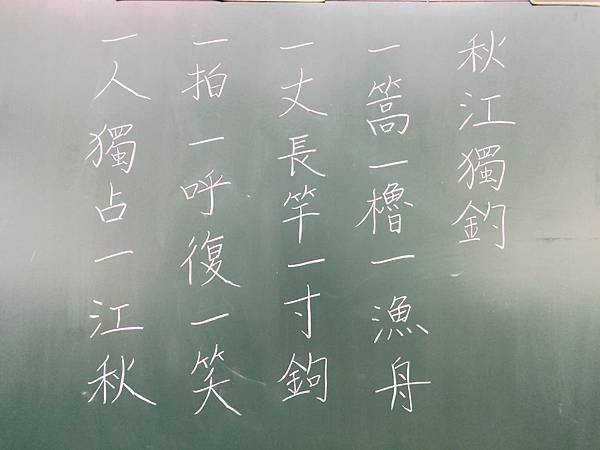 秋江獨釣
一篙一櫓一漁舟
一丈長竿一寸鉤
一拍一呼復一笑
一人獨占一江秋